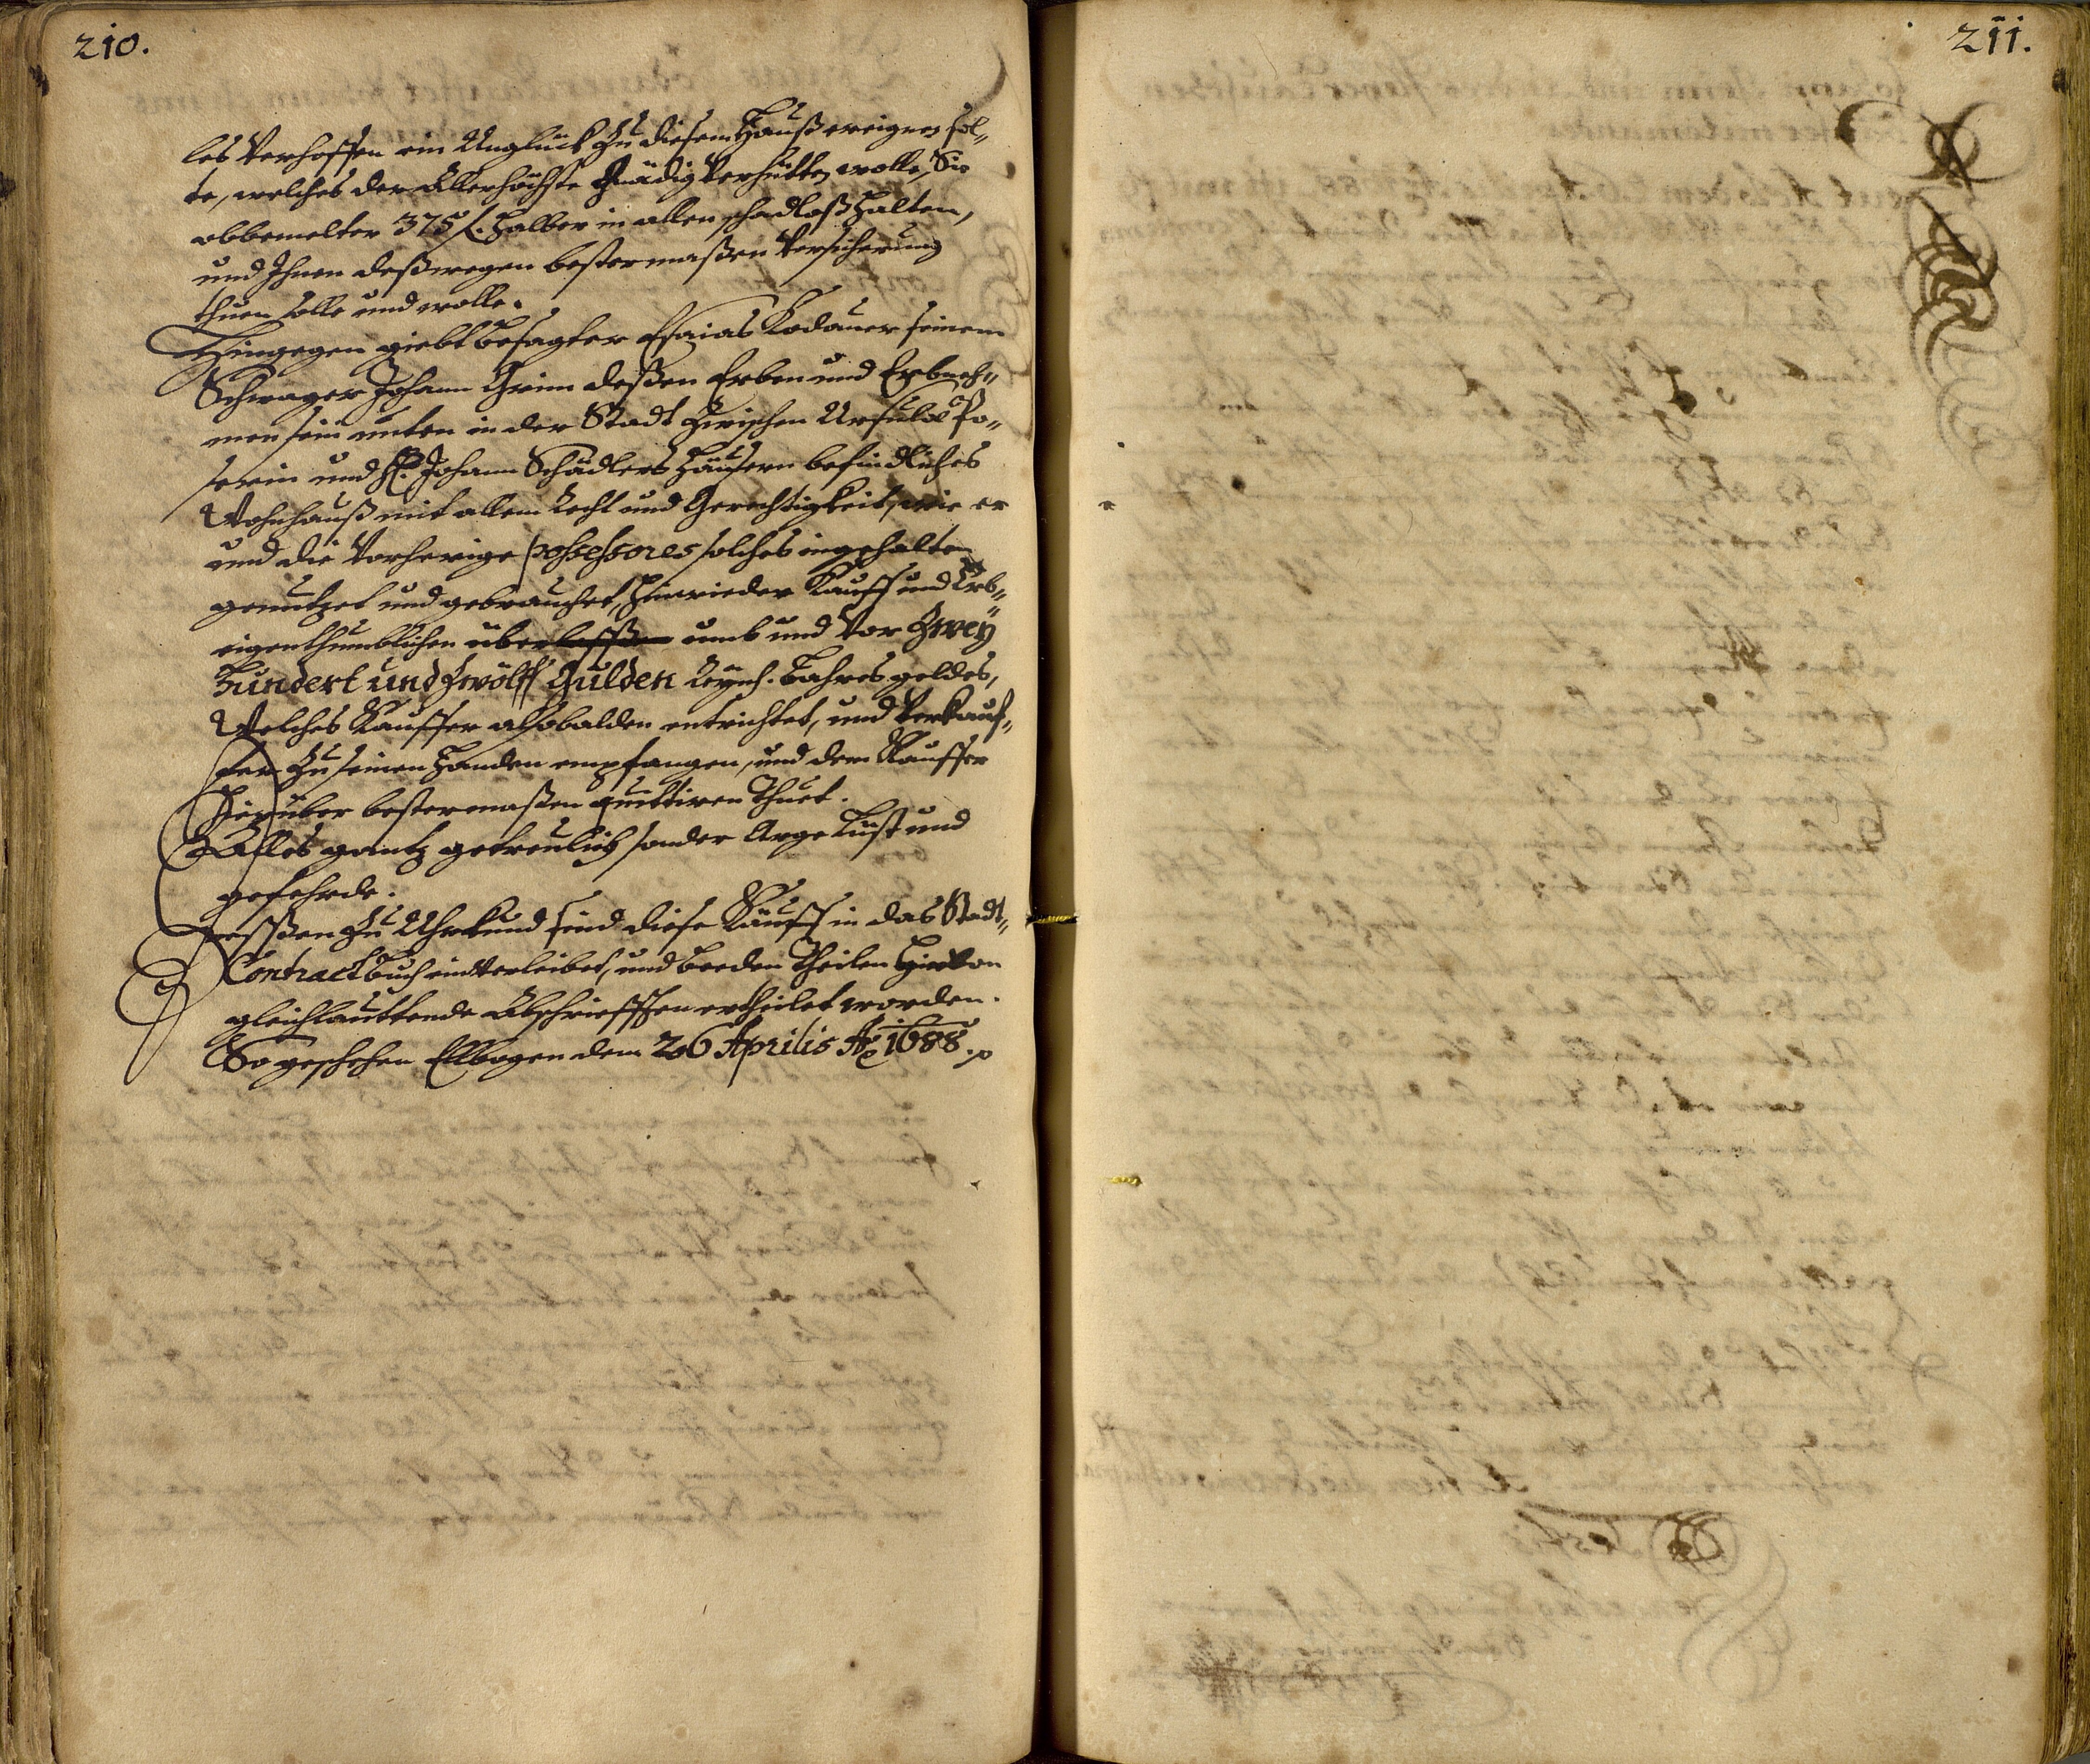 210.
les Verhoffen ein Unglück Zu diesem Hauß ereignen sol„
te, welches der Allerhöchste Gnädig Verhütten wolle, Sie
obbemelter 375 f. halber in allen schadloß halten,
und Ihnen deßwegen bestermaßen Versicherung
thuen solle und wolle.
Hingegen giebt besagter Esaias Kodauer seinem
Schwager Johann Grim deßen Erben und Erbneh„
men sein unten in der Stadt Zwischen Ursula Po„
serin und H. Johann Schädlers Häusern befindliches
Wohnhauß mit allem Recht und Gerechtigkeit, wie er
und die Vorherige possessores solches ingehalten
genutzet und gebrauchet, hinwieder Kauff und Erb„
eigenthumblichen überlassen umb und Vor Zweÿ
Hundert und Zwölff Gulden Reÿnh. bahres geldes,
Welches Kauffer alsobalden entrichtet, und Verkauf„
fer Zu seinen Handen empfangen, und dem Kauffer
hierüber bestermaßen quittiren Thuet.
Alles gantz getreulich sonder Arge List und
gefehrde.
Dessen Zu Uhrkund sind diese Käuff in das Stadt„
Contractbuch einverleibet, und beeden Theilen hievon
gleichlauttende Abschriefften ertheilet worden.
So geschehen Elbogen dem 26 Aprilis Ao 1688.
211.